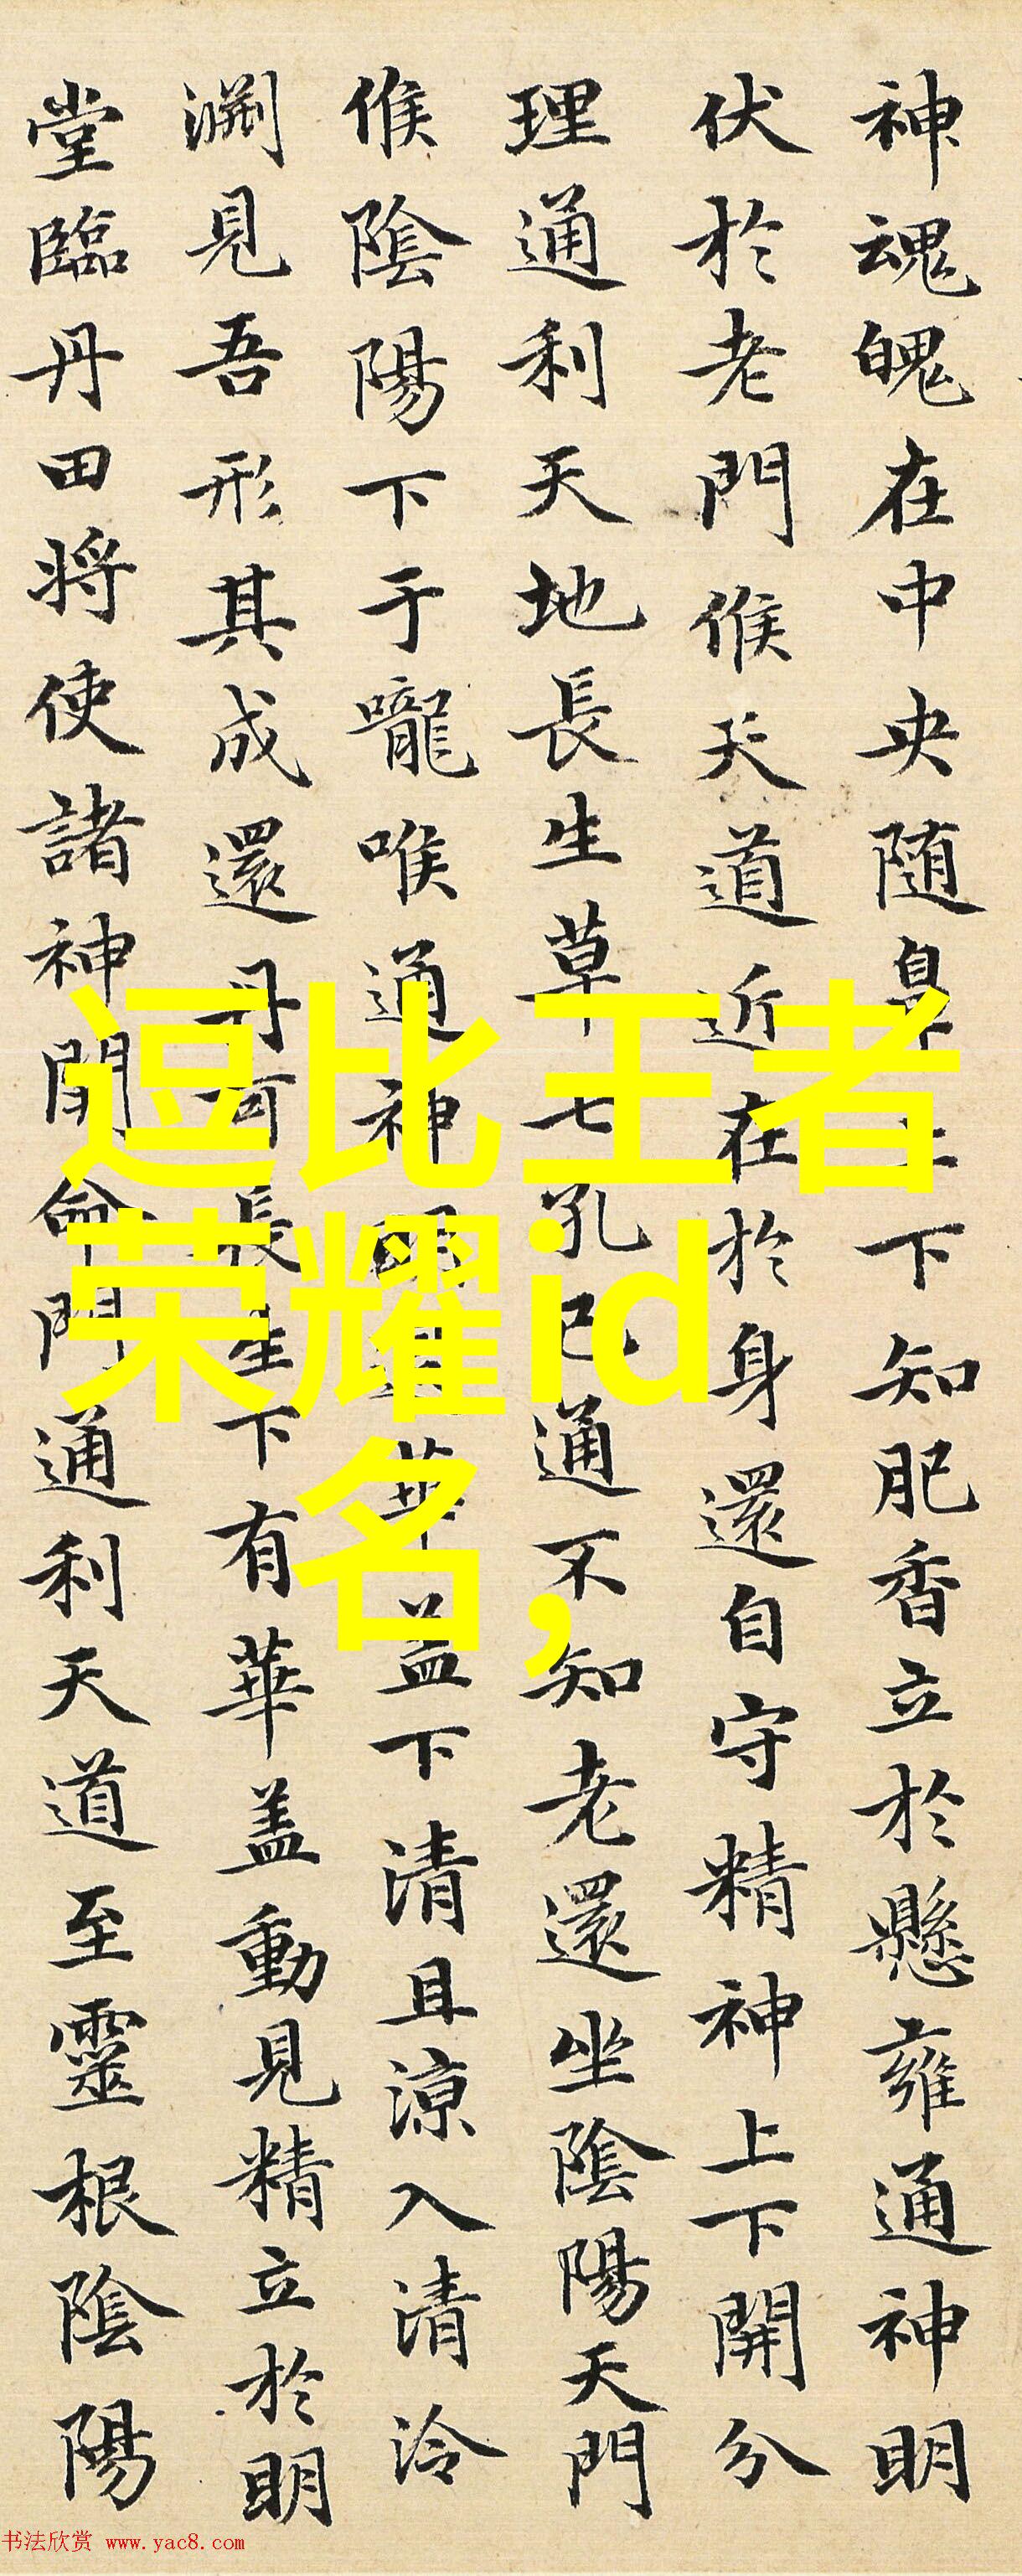 神魂魄在中央随鼻上下知肥香立於懸雍通神明
伏於老門候天道近在於身還自守精神上下開分
理通利天地長生草七孔已通不知老還坐陰陽天門
候陰陽下于嚨喉通神明過華蓋下清且涼入清泠
淵見吾形其成還丹可長生下有華盖動見精立於明
堂臨丹田将使諸神開命門通利天道至靈根陰陽
逗比王者
荣耀id
名,
书法欣赏 www.yac8.com